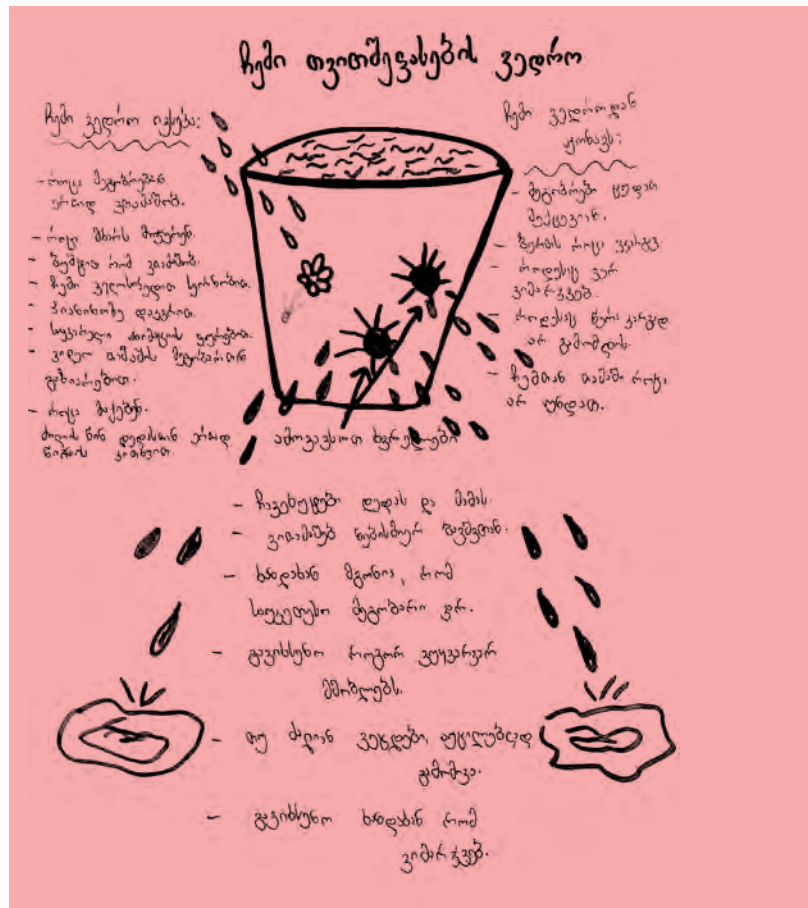 ჩემი თვითშეფასების ვედრო
ჩემი ვედრო ივსება:
- როცა მეგობრებთან
ერთად ვთამაშობ.
- როცა მხარს მიჭერენ.
- ბუშტით რომ ვთამაშობ.
- ჩემი ველოსიპედით სეირნობით.
- პიანინოზე დაკვრით.
- საყვარელი
- ვიდეო თამაშის მეგობართან
გაზიარებით.
- როცა მაქებენ.
ძილის წინ დედასთან ერთად
წიგნის კითხვით.
ჩემი ვედროდან
ჟონავს:
- მეგობრები ცუდათ
მექცევიან.
- ბურთს როცა ვკარგავ
- როდესაც ვერ
ვიმარჯვებ.
- როდესაც წერა კარგად
არ გამომდის.
- ჩემთან თამაში როცა
არ უნდათ.
ამოვავსოთ ხვრელები
- ჩავეხუტები დედას და მამას.
- ვითამაშებ ნებისმიერ ბავშვთან.
- ხანდახან მგონია, რომ
საუკეთესო მეგობარი ვარ.
- გავიხსენო როგორ ვუყვარვარ
მშობლებს.
- თუ ძალიან ვეცდები, აუცილებლად
გამომივა.
- გავიხსენო ხანდახან რომ
ვიმარჯვებ.